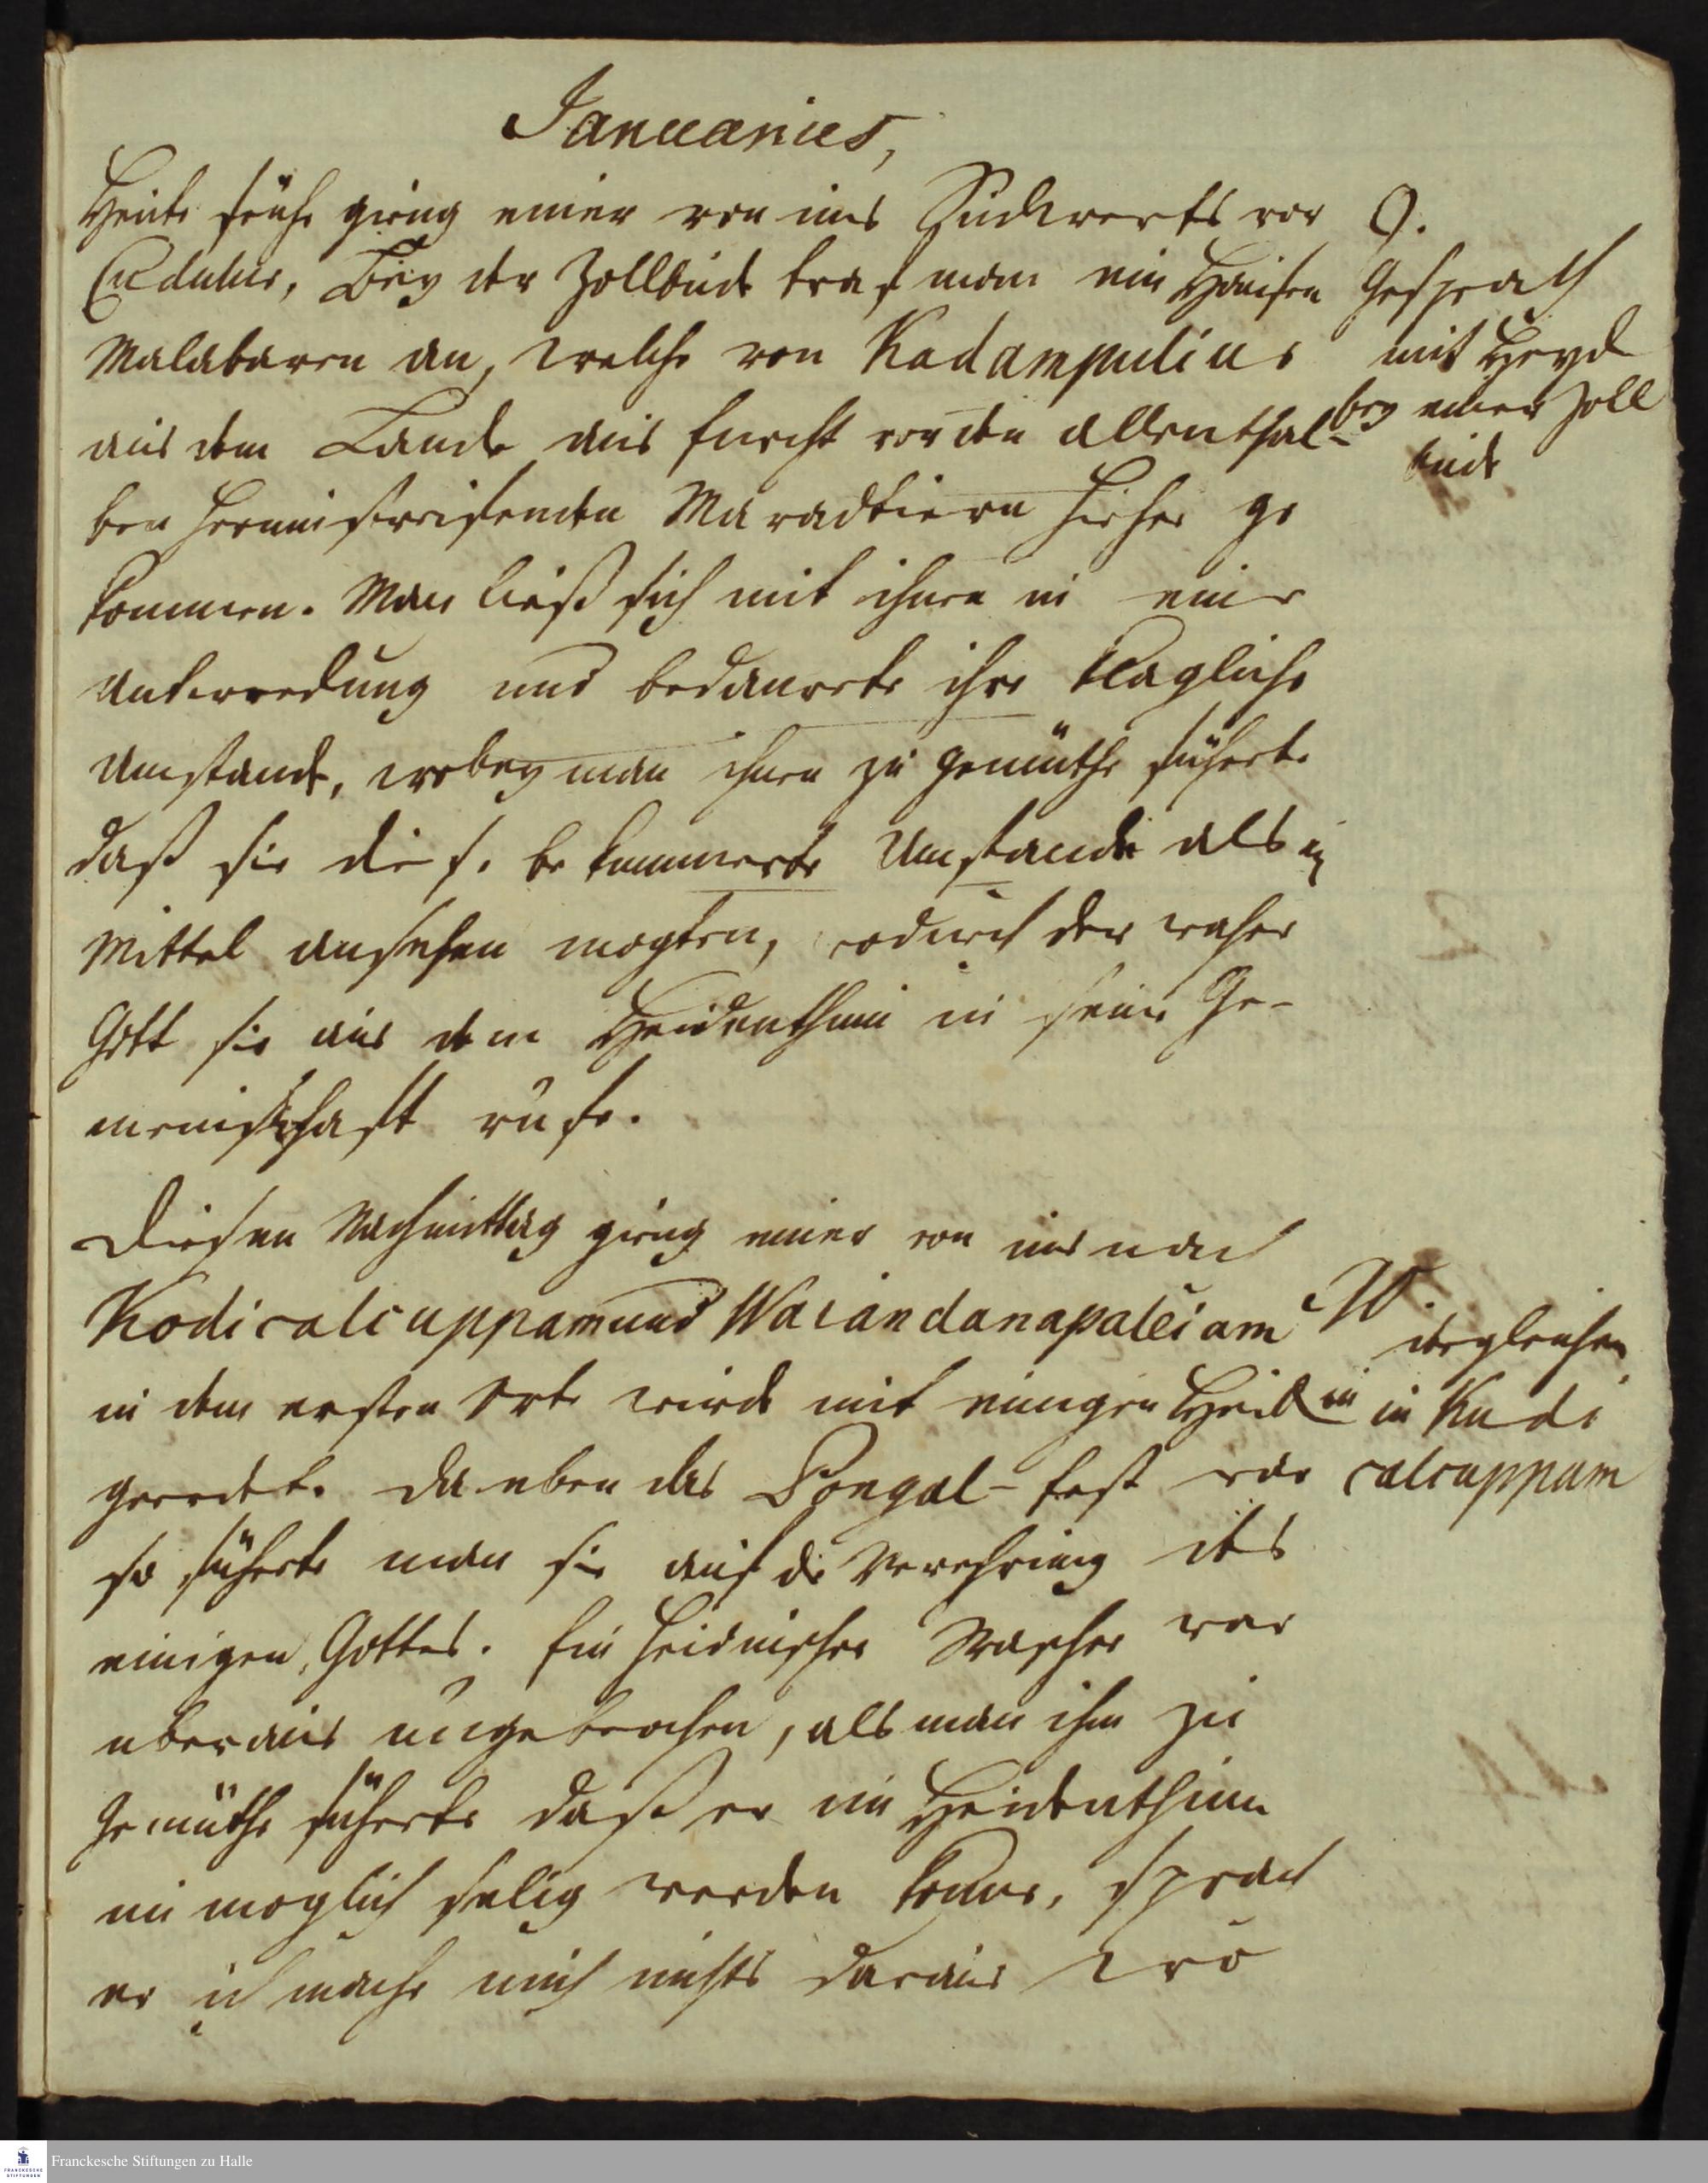 Januarius,
Heute frühe gieng einer von uns Sudwerts vor
Cudulur, Bey der Zollbude traf man ein Haufen
Malabaren an, welche von Kadampulius
aus dem Lande aus furcht vor den allenthal-
ben herumstreifenden Maradtiern hieher ge
kommen. Man ließ sich mit ihnen in eine
Unterredung und bedauerte ihre klagliche
Umstande, wobey man ihnen zu gemüthe führte
daß sie diese bekummerte Umstande als ein
Mittel ansehen mogten, wodurch der wahre
Gott sie aus dem Heidenthum in seine Ge-
meinschaft rufe.
9.
Gesprach
mit Heyd
bey einer Zoll
bude
Diesen Nachmittag gieng einer von uns nach
Kodicalcuppam und Wacandanapaleiam
in dem ersten Orte wurde mit einigen Heiden
geredet. Da eben das Pongal-fest war
so führte man sie auf die Verehrung des
einigen Gottes. Ein heidnischer Wascher war
uberaus ungebrochen, als man ihm zu
Gemüthe führte daß er im Heidenthum
unmoglich selig werden konne, sprach
er ich mache mich nichts daraus wo
10.
dergleichen
in Kudi
calcuppam
Franckesche Stiftungen zu Halle